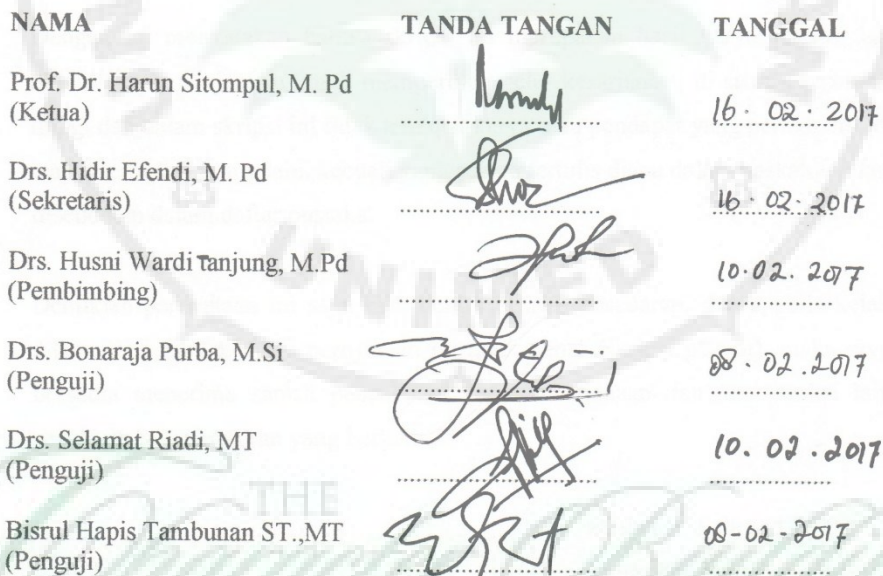 NAMA TANDA TANGAN TANGGAL
Prof. Dr. Harun Sitompul, M. Pd
(Ketua) 16 . 02 . 2017
Drs. Hidir Efendi, M. Pd
(Sekretaris) 16 . 02 . 2017
Drs. Husni Wardi Tanjung, M.Pd
(Pembimbing) 10.02. 2017
UNIMED
Drs. Bonaraja Purba, M.Si
(Penguji) 08 . 02 .2017
Drs. Selamat Riadi, MT
(Penguji) 10. 02 .2017
THE
Bisrul Hapis Tambunan ST.,MT
(Penguji) 08-02-2017